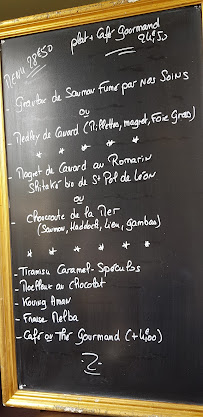 Menu 28€50
plat + Café Gourmand
24€50
- Gravlax de Saumon Fumé par nos Soins
ou
- Medley de Canard (Rillettes, magret, Foie Gras)
* * * * * *
- Magret de Canard au Romarin
Shitaké bio de St Pol de Léon
ou
- Choucroute de la Mer
(Saumon, Haddock, Lieu, gambas)
* * * * * *
- Tiramisu Caramel-Spéculos
- Moelleux au chocolat
- Kouing Aman
- Fraise Melba
- Café ou Thé Gourmand (+4€00)